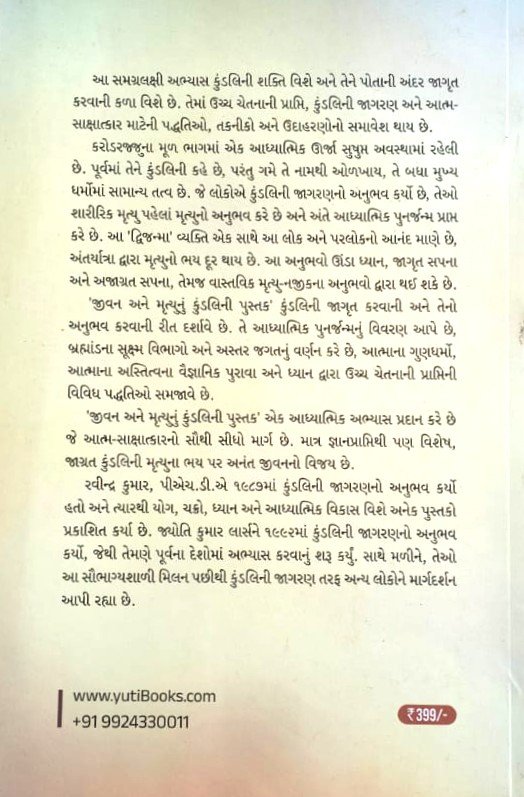 આ સમગ્રલક્ષી અભ્યાસ કુંડલિની શક્તિ વિશે અને તેને પોતાની અંદર જાગૃત
કરવાની કળા વિશે છે. તેમાં ઉચ્ચ ચેતનાની પ્રાપ્તિ, કુંડલિની જાગરણ અને આત્મ-
સાક્ષાત્કાર માટેની પદ્ધતિઓ, તકનીકો અને ઉદાહરણોનો સમાવેશ થાય છે.
કરોડરજ્જુના મૂળ ભાગમાં એક આધ્યાત્મિક ઊર્જા સુષુમ અવસ્થામાં રહેલી
છે. પૂર્વમાં તેને કુંડલિની કહે છે, પરંતુ ગમે તે નામથી ઓળખાય, તે બધા મુખ્ય
ધર્મોમાં સામાન્ય તત્વ છે. જે લોકોએ કુંડલિની જાગરણનો અનુભવ કર્યો છે, તેઓ
શારીરિક મૃત્યુ પહેલાં મૃત્યુનો અનુભવ કરે છે અને અંતે આધ્યાત્મિક પુનર્જન્મ પ્રાપ્ત
કરે છે. આ 'દ્વિજન્મા' વ્યક્તિ એક સાથે આ લોક અને પરલોકનો આનંદ માણે છે,
અંતર્યાત્રા દ્વારા મૃત્યુનો ભય દૂર થાય છે. આ અનુભવો ઊંડા ધ્યાન, જાગૃત સપના
અને અજાગ્રત સપના, તેમજ વાસ્તવિક મૃત્યુ-નજીકના અનુભવો દ્વારા થઈ શકે છે.
'જીવન અને મૃત્યુનું કુંડલિની પુસ્તક' કુંડલિની જાગૃત કરવાની અને તેનો
અનુભવ કરવાની રીત દર્શાવે છે. તે આધ્યાત્મિક પુનર્જન્મનું વિવરણ આપે છે,
બ્રહ્માંડના સૂક્ષ્મ વિભાગો અને અસ્તર જગતનું વર્ણન કરે છે, આત્માના ગુણધર્મો,
આત્માના અસ્તિત્વના વૈજ્ઞાનિક પુરાવા અને ધ્યાન દ્વારા ઉચ્ચ ચેતનાની પ્રાપ્તિની
વિવિધ પદ્ધતિઓ સમજાવે છે.
'જીવન અને મૃત્યુનું કુંડલિની પુસ્તક' એક આધ્યાત્મિક અભ્યાસ પ્રદાન કરે છે
જે આત્મ-સાક્ષાત્કારનો સૌથી સીધો માર્ગ છે. માત્ર જ્ઞાનપ્રાપ્તિથી પણ વિશેષ,
જાગ્રત કુંડલિની મૃત્યુના ભય પર અનંત જીવનનો વિજય છે.
રવીન્દ્ર કુમાર, પીએચ.ડી.એ ૧૯૮૭માં કુંડલિની જાગરણનો અનુભવ કર્યો
હતો અને ત્યારથી યોગ, ચક્રો, ધ્યાન અને આધ્યાત્મિક વિકાસ વિશે અનેક પુસ્તકો
પ્રકાશિત કર્યા છે. જ્યોતિ કુમાર લાર્સને ૧૯૯૨માં કુંડલિની જાગરણનો અનુભવ
કર્યો, જેથી તેમણે પૂર્વના દેશોમાં અભ્યાસ કરવાનું શરૂ કર્યું. સાથે મળીને, તેઓ
આ સૌભાગ્યશાળી મિલન પછીથી કુંડલિની જાગરણ તરફ અન્ય લોકોને માર્ગદર્શન
આપી રહ્યા છે.
www.yutiBooks.com
+91 9924330011
₹399/-